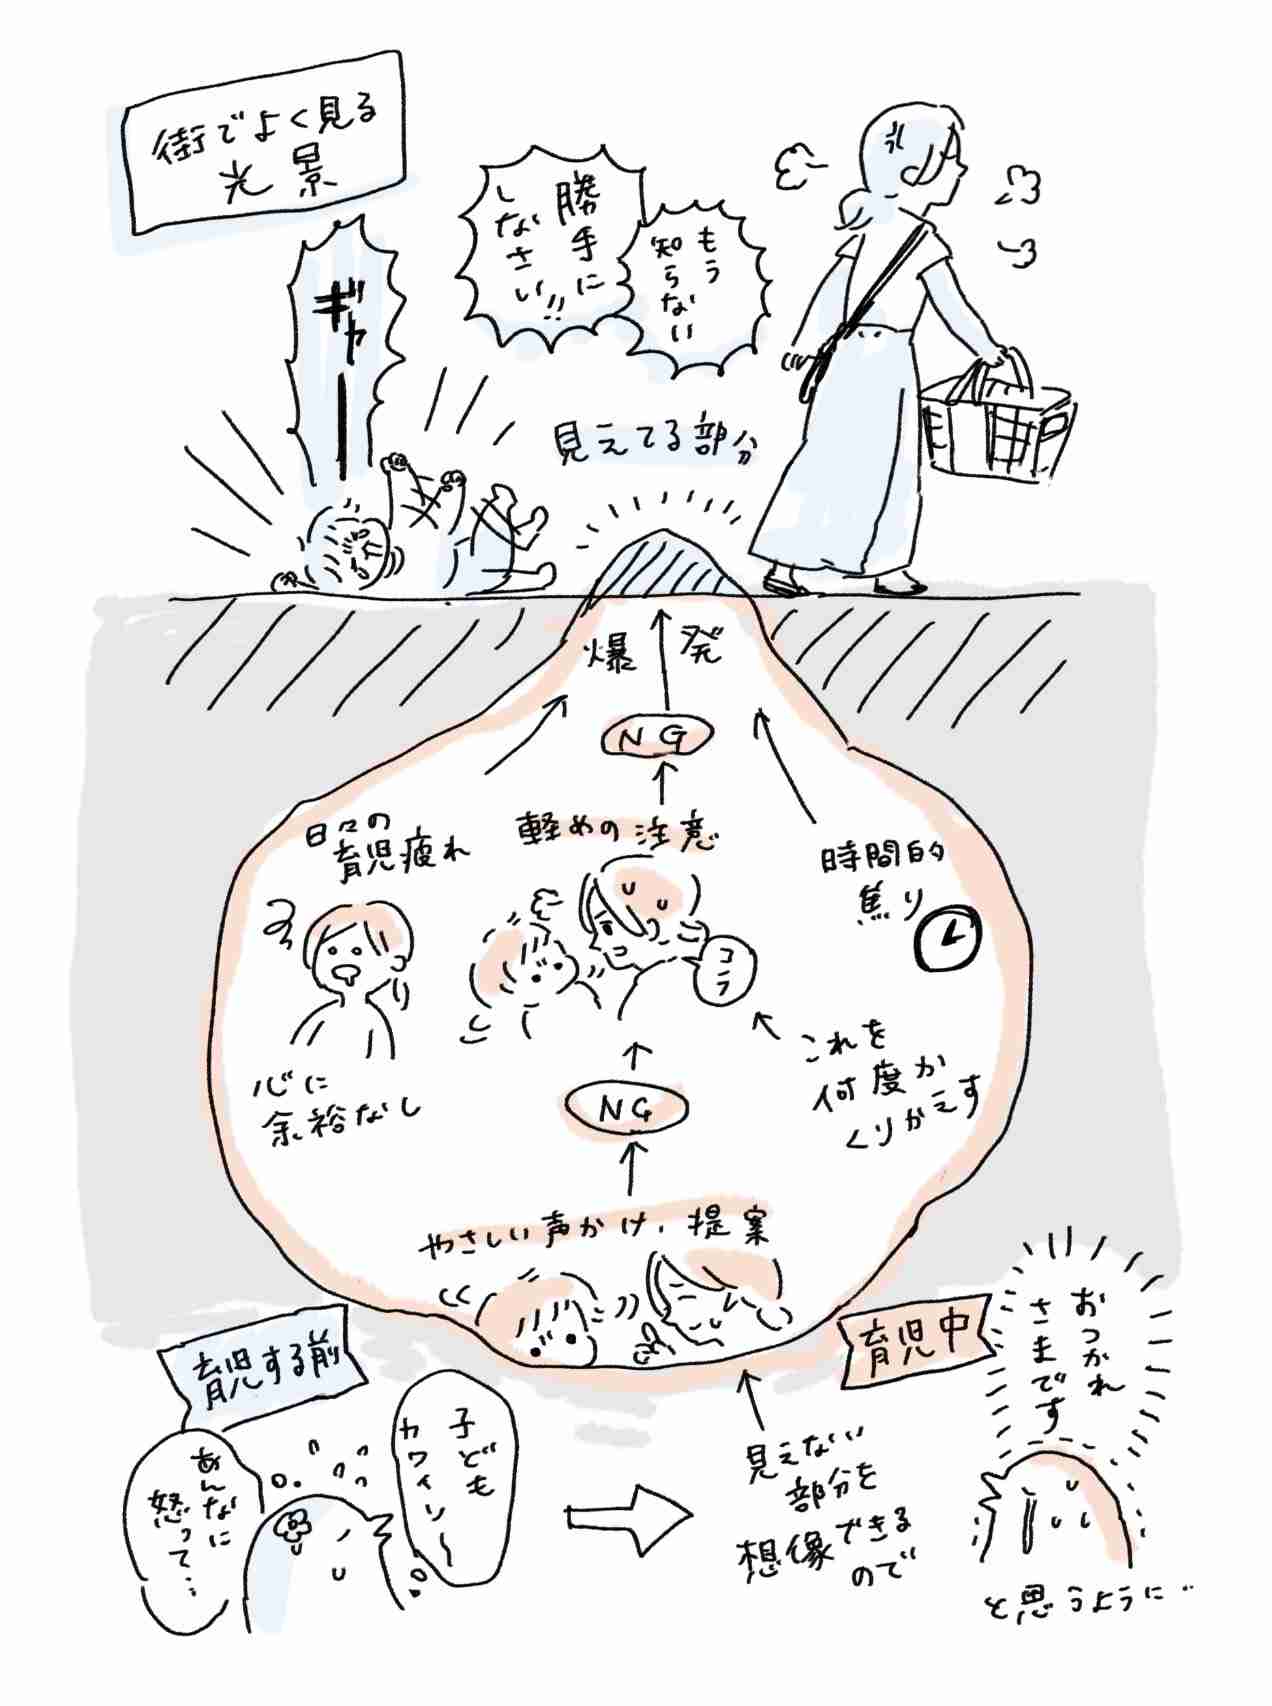 街でよく見る
光景
ギャー
もう
知らない
勝手に
しなさい!!
見えてる部分
爆発
NG
日々の
育児疲れ
軽めの注意
時間的
焦り
コラ
心に
余裕なし
これを
何度か
くりかえす
NG
やさしい声かけ、提案
育児する前
育児中
あんなに
怒って…
子ども
カワイソ〜
見えない
部分を
想像できる
ので
おつかれ
さまです
と思うように…